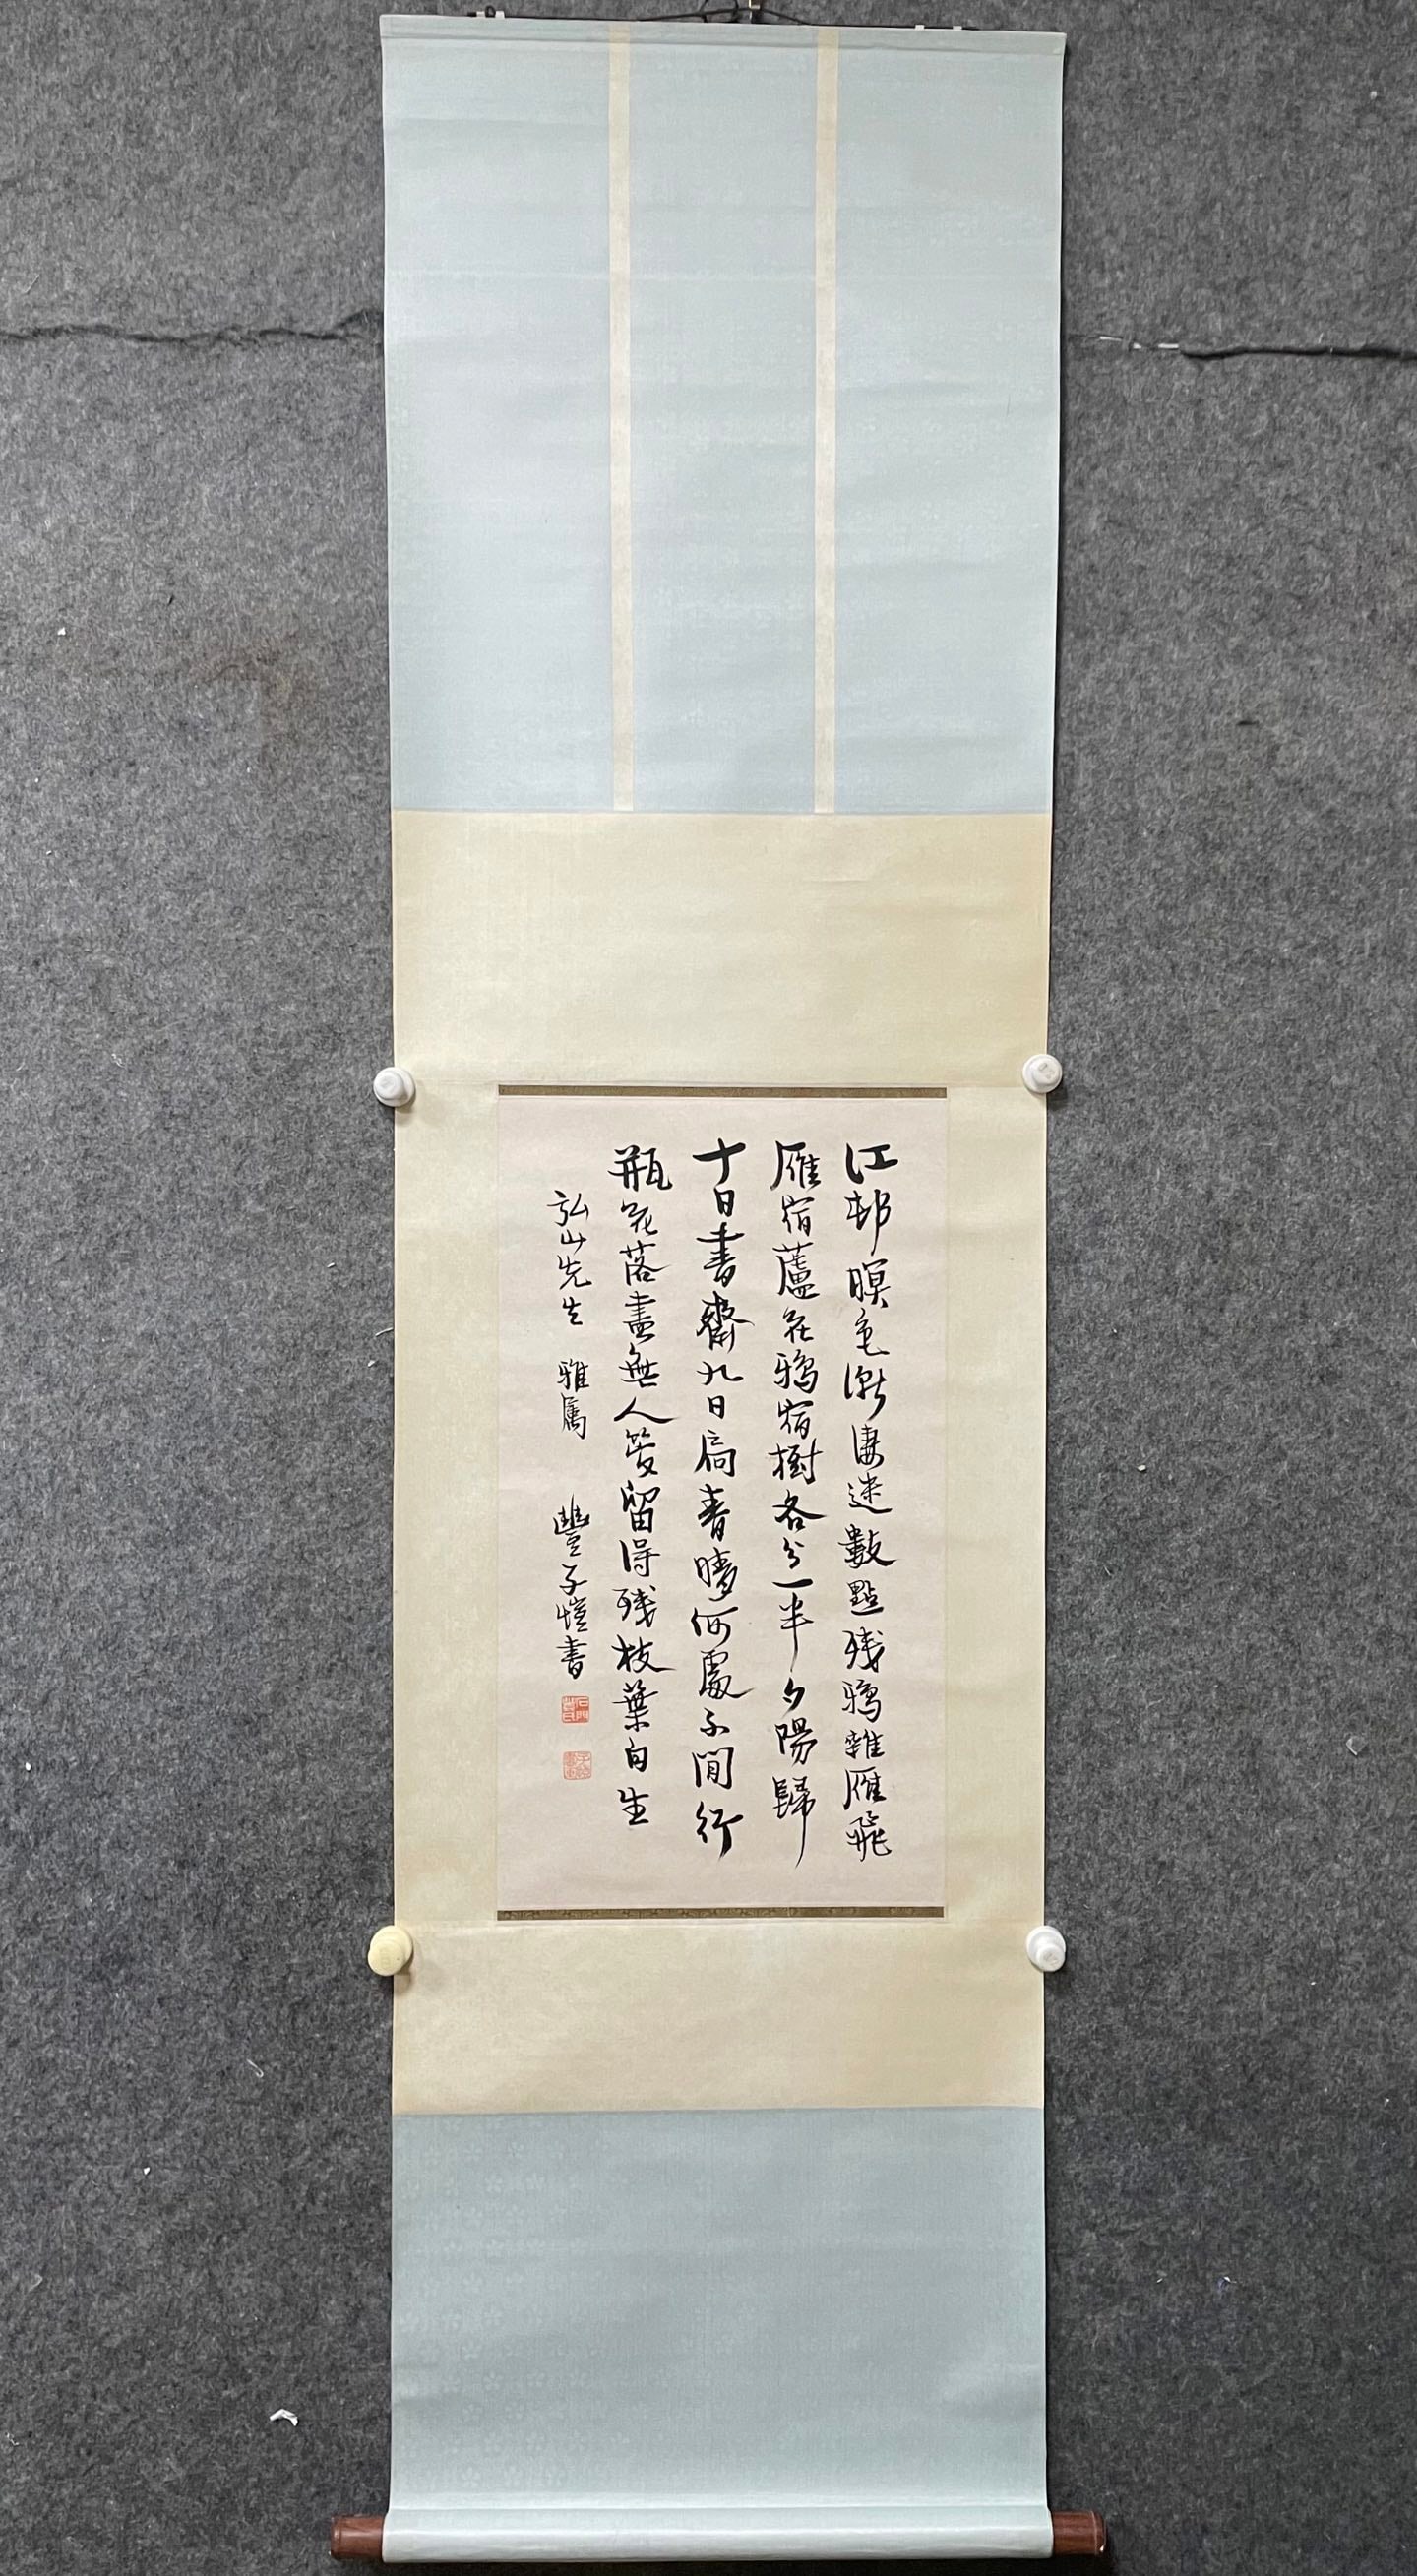 江邨暝色漸凄迷數點残鴉雜雁飛
雁宿蘆花鴉宿樹各分一半夕陽歸
十日書齋九日扃春晴何處不閒行
瓶花落盡無人管留得残枝葉自生
弘山先生 雅属 豐子愷書
石門豐氏